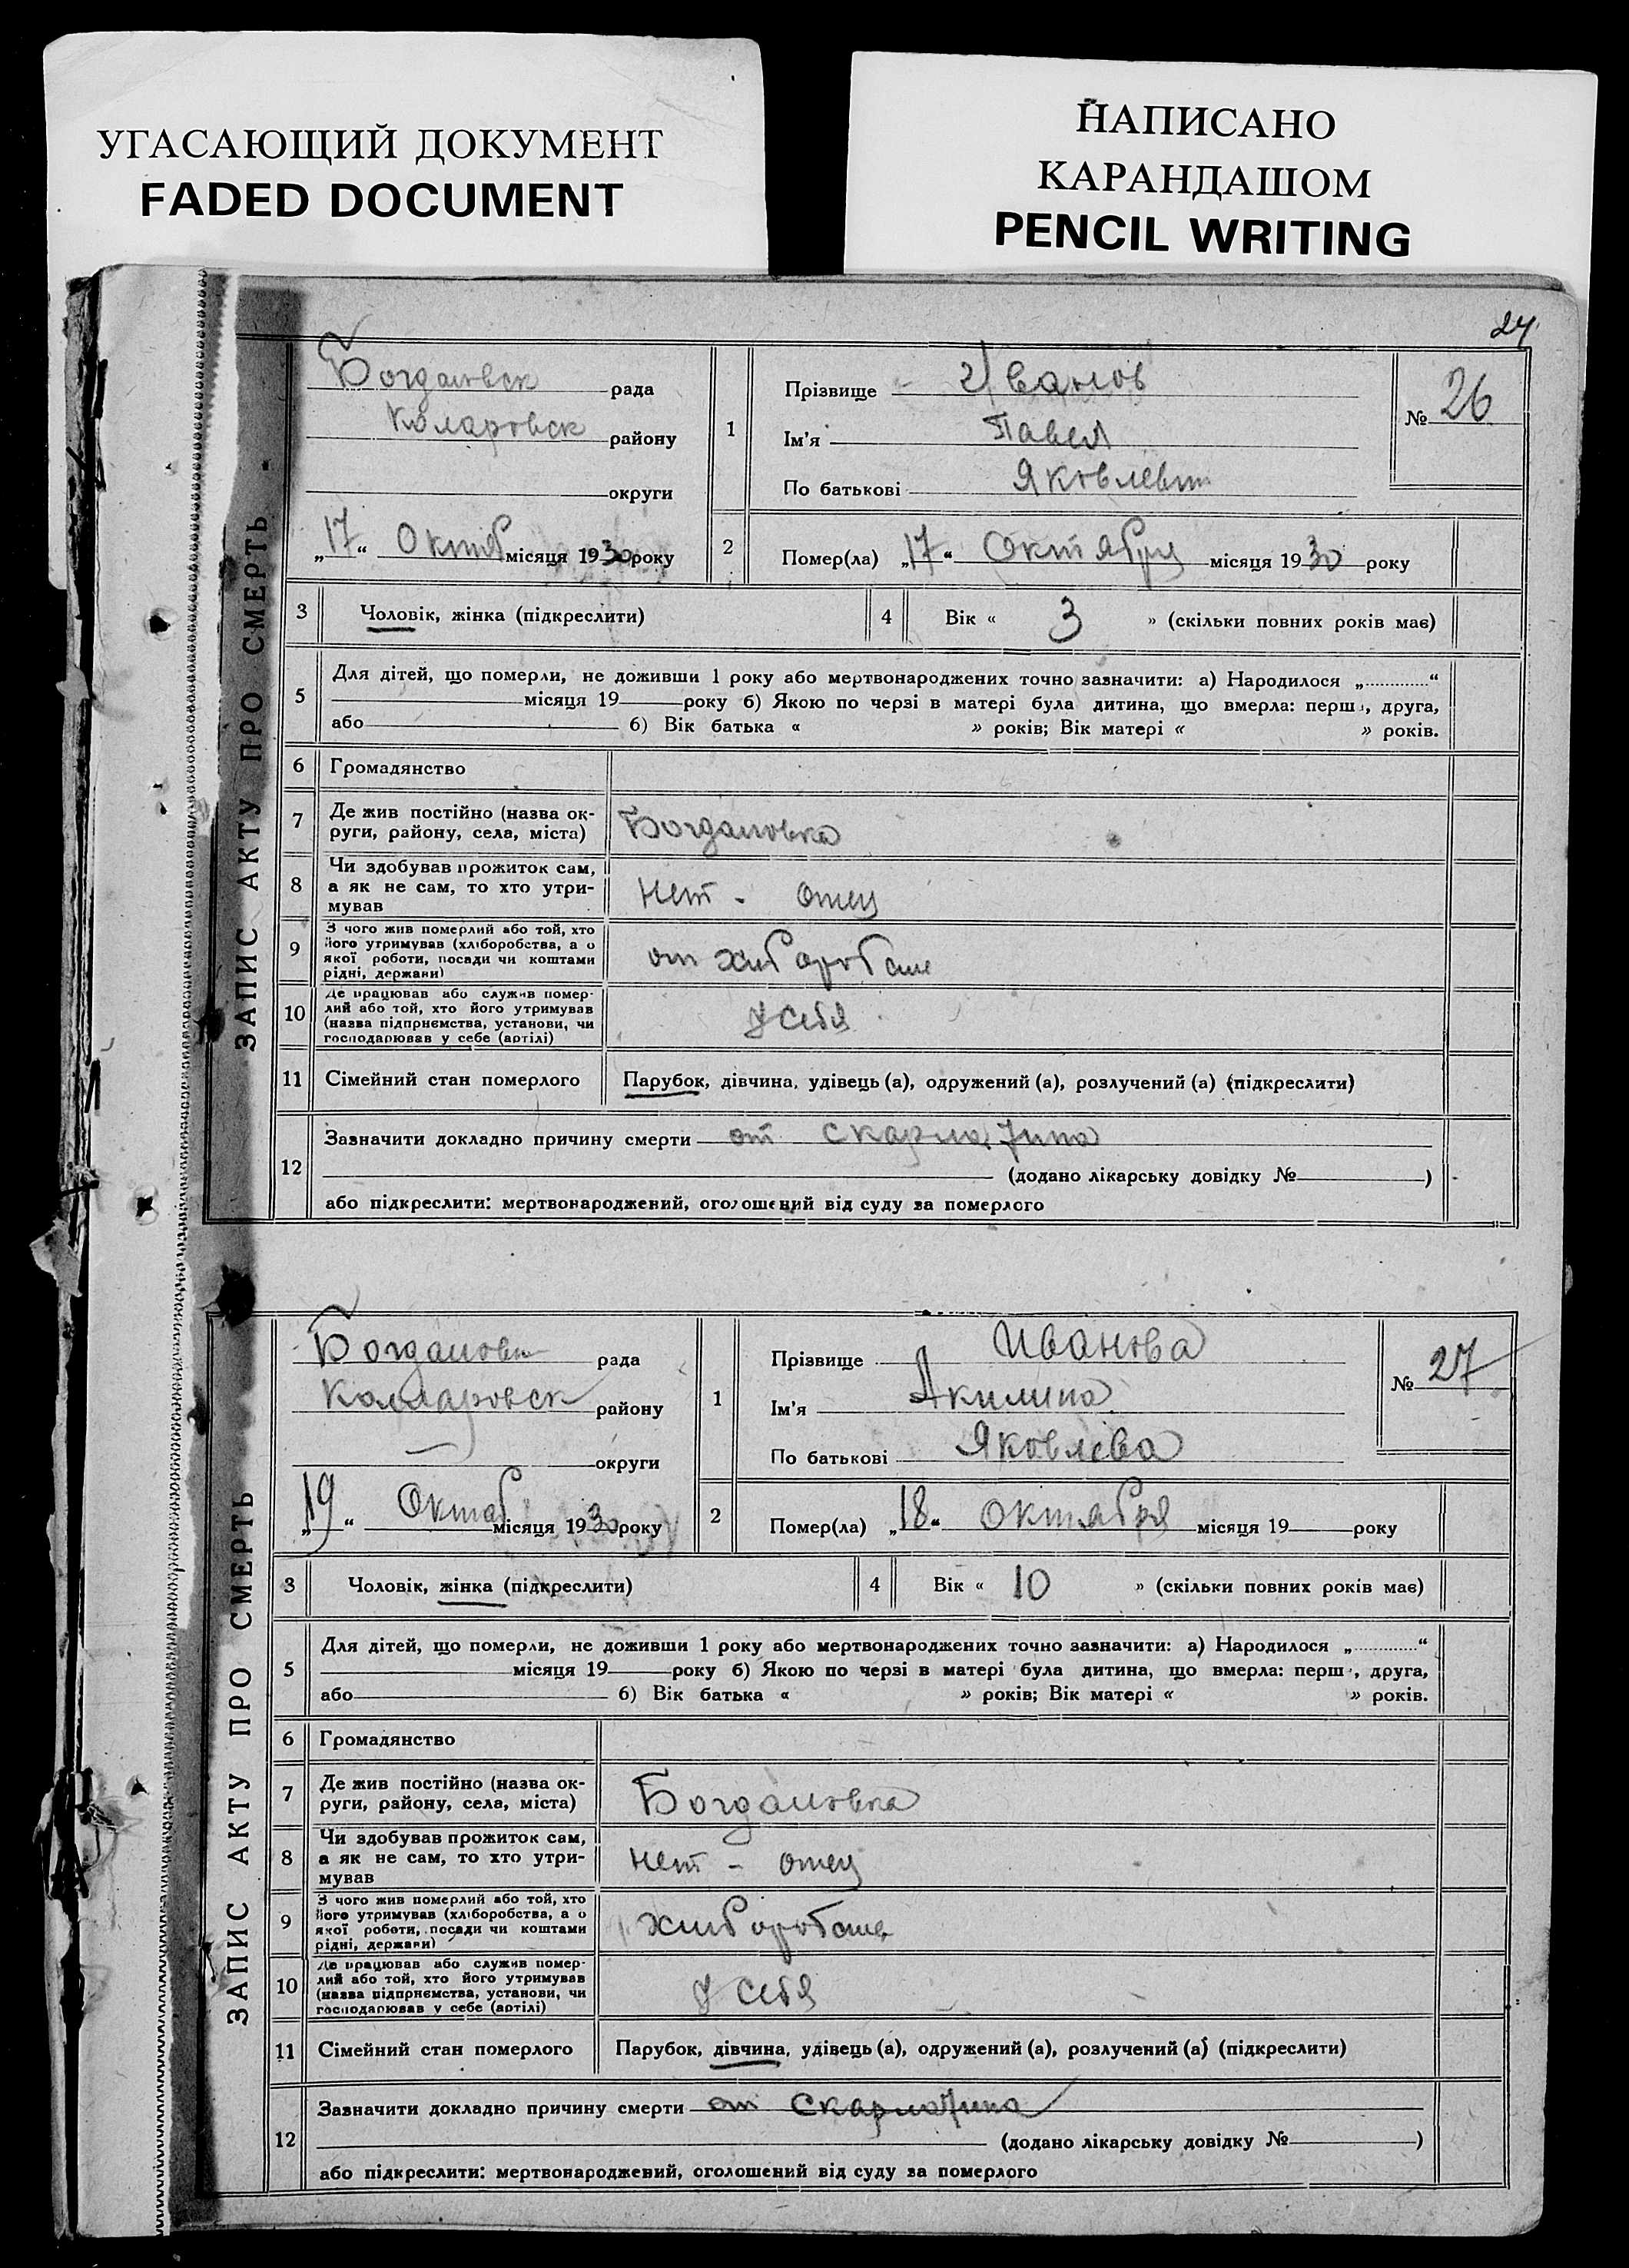 УГАСАЮЩИЙ ДОКУМЕНТ
FADED DOCUMENT
НАПИСАНО
КАРАНДАШОМ
PENCIL WRITING
24
ЗАПИС АКТУ ПРО СМЕРТЬ
Богдановск рада
Коларовск району
округи
„17“ Октяб місяця 1930 року
1 Прізвище Иванов
Ім'я Павел
По батькові Яковлевич
№ 26
2 Помер(ла) „17“ Октября місяця 1930 року
3 Чоловік, жінка (підкреслити) 4 Вік « 3 » (скільки повних років має)
5 Для дітей, що померли, не доживши 1 року або мертвонароджених точно зазначити: а) Народилося „............“
місяця 19 року б) Якою по черзі в матері була дитина, що вмерла: перш, друга,
або б) Вік батька « » років; Вік матері « » років.
6 Громадянство
7 Де жив постійно (назва ок-
руги, району, села, міста) Богдановка
8 Чи здобував прожиток сам,
а як не сам, то хто утри-
мував нет - отец
9 З чого жив померлий або той, хто
його утримував (хліборобства, а о
якої роботи, посади чи коштами
рідні, держави) от хлиборобст
10 Де працював або служив помер-
лий або той, хто його утримував
(назва підприємства, установи, чи
господарював у себе (артілі) у себя
11 Сімейний стан померлого Парубок, дівчина, удівець (а), одружений (а), розлучений (а) (підкреслити)
12 Зазначити докладно причину смерти от скарлатина
(додано лікарську довідку № )
або підкреслити: мертвонароджений, оголошений від суду за померлого
ЗАПИС АКТУ ПРО СМЕРТЬ
Богдановск рада
Коларовск району
округи
„19“ Октяб місяця 1930 року
1 Прізвище Иванова
Ім'я Акилина
По батькові Яковлева
№ 27
2 Помер(ла) „18“ Октября місяця 19 року
3 Чоловік, жінка (підкреслити) 4 Вік « 10 » (скільки повних років має)
5 Для дітей, що померли, не доживши 1 року або мертвонароджених точно зазначити: а) Народилося „............“
місяця 19 року б) Якою по черзі в матері була дитина, що вмерла: перш, друга,
або б) Вік батька « » років; Вік матері « » років.
6 Громадянство
7 Де жив постійно (назва ок-
руги, району, села, міста) Богдановка
8 Чи здобував прожиток сам,
а як не сам, то хто утри-
мував нет - отец
9 З чого жив померлий або той, хто
його утримував (хліборобства, а о
якої роботи, посади чи коштами
рідні, держави) хлиборобст
10 Де працював або служив помер-
лий або той, хто його утримував
(назва підприємства, установи, чи
господарював у себе (артілі) у себя
11 Сімейний стан померлого Парубок, дівчина, удівець (а), одружений (а), розлучений (а) (підкреслити)
12 Зазначити докладно причину смерти от Скарлатина
(додано лікарську довідку № )
або підкреслити: мертвонароджений, оголошений від суду за померлого